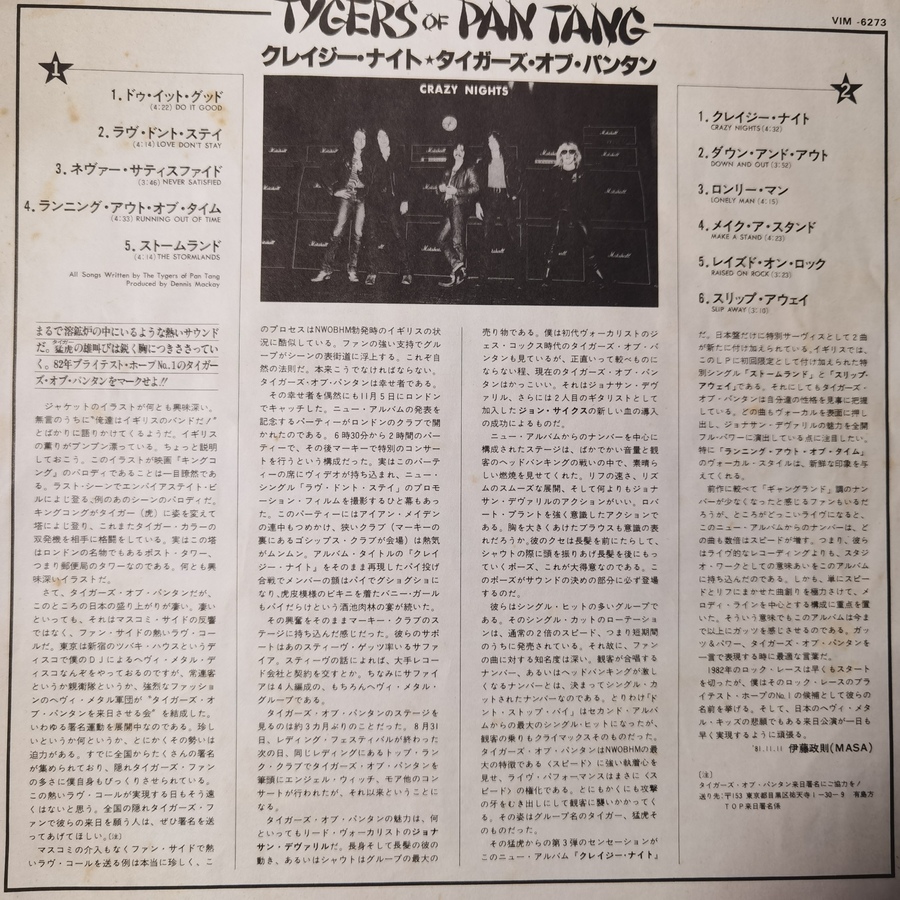 TYGERS OF PAN TANG
VIM-6273
クレイジー・ナイト★タイガーズ・オブ・パンタン
1
1.ドゥ・イット・グッド
(4:22) DO IT GOOD
2.ラヴ・ドント・ステイ
(4:14) LOVE DON'T STAY
3.ネヴァー・サティスファイド
(3:46) NEVER SATISFIED
4.ランニング・アウト・オブ・タイム
(4:33) RUNNING OUT OF TIME
5.ストームランド
(4:14) THE STORMLANDS
All Songs Written by The Tygers of Pan Tang
Produced by Dennis Mackay
CRAZY NIGHTS
2
1.クレイジー・ナイト
CRAZY NIGHTS (4:32)
2.ダウン・アンド・アウト
DOWN AND OUT (3:52)
3.ロンリー・マン
LONELY MAN (4:15)
4.メイク・ア・スタンド
MAKE A STAND (4:23)
5.レイズド・オン・ロック
RAISED ON ROCK (3:23)
6.スリップ・アウェイ
SLIP AWAY (3:10)
まるで溶鉱炉の中にいるような熱いサウンド
だ。猛虎の雄叫びは鋭く胸につきささってい
く。82年ブライテスト・ホープNo.1のタイガー
ズ・オブ・パンタンをマークせよ!!
ジャケットのイラストが何とも興味深い。
無言のうちに"俺達はイギリスのバンドだ!"
とばかりに語りかけてくるようだ。イギリス
の薫りがプンプン漂っている。ちょっと説明
しておこう。このイラストが映画『キングコ
ング』のパロディであることは一目瞭然であ
る。ラスト・シーンでエンパイアステイト・ビ
ルによじ登る、例のあのシーンのパロディだ。
キングコングがタイガー(虎)に姿を変えて
塔によじ登り、これまたタイガー・カラーの
双発機を相手に格闘をしている。実はこの塔
はロンドンの名物でもあるポスト・タワー、
つまり郵便局のタワーなのである。何とも興
味深いイラストだ。
さて、タイガーズ・オブ・パンタンだが、
このところの日本の盛り上がりが凄い。凄い
といっても、それはマスコミ・サイドの反響
ではなく、ファン・サイドの熱いラヴ・コー
ルだ。東京は新宿のツバキ・ハウスというデ
ィスコで僕のDJによるヘヴィ・メタル・ディ
スコなんぞをやっておるのですが、常連客
というか親衛隊というか、強烈なファッショ
ンのヘヴィ・メタル軍団が"タイガーズ・オ
ブ・パンタンを来日させる会"を結成した。
いわゆる署名運動を展開中なのである。珍し
いというか何というか、とにかくその勢いは
迫力がある。すでに全国からたくさんの署名
が集められており、隠れタイガーズ・ファン
の多さに僕自身もびっくりさせられている。
この熱いラヴ・コールが実現する日もそう遠
くはないと思う。全国の隠れタイガーズ・フ
ァンで彼らの来日を願う人は、ぜひ署名を送
ってあげてほしい。[注]
マスコミの介入もなくファン・サイドで熱
いラヴ・コールを送る例は本当に珍しく、こ
のプロセスはNWOBHM勃発時のイギリスの状
況に酷似している。ファンの強い支持でグル
ープがシーンの表街道に浮上する。これぞ自
然の法則だ。本来こうでなければならない。
タイガーズ・オブ・パンタンは幸せ者である。
その幸せ者を偶然にも11月5日にロンドン
でキャッチした。ニュー・アルバムの発表を
記念するパーティーがロンドンのクラブで開
かれたのである。6時30分から2時間のパー
ティーで、その後マーキーで特別のコンサー
トを行うという構成だった。実はこのパーテ
ィーの席にヴィデオが持ち込まれ、ニュー・
シングル「ラヴ・ドント・ステイ」のプロモ
ーション・フィルムを撮影するひと幕もあっ
た。このパーティーにはアイアン・メイデン
の連中もつめかけ、狭いクラブ(マーキーの
裏にあるゴシップス・クラブが会場)は熱気
がムンムン。アルバム・タイトルの『クレイ
ジー・ナイト』をそのまま再現したパイ投げ
合戦でメンバーの顔はパイでグショグショに
なり、虎皮模様のビキニを着たバニー・ガール
もパイだらけという酒池肉林の宴が続いた。
その興奮をそのままマーキー・クラブのス
テージに持ち込んだ感じだった。彼らのサポ
ートはあのスティーヴ・ゲッツ率いるサファ
イア。スティーヴの話によれば、大手レコー
ド会社と契約を交すとか。ちなみにサファイ
アは4人編成の、もちろんヘヴィ・メタル・
グループである。
タイガーズ・オブ・パンタンのステージを
見るのは約3カ月ぶりのことだった。8月31
日、レディング・フェスティバルが終わった
次の日、同じレディングにあるトップ・ラン
ク・クラブでタイガーズ・オブ・パンタンを
筆頭にエンジェル・ウィッチ、モア他のコン
サートが行われたが、それ以来ということに
なる。
タイガーズ・オブ・パンタンの魅力は、何
といってもリード・ヴォーカリストのジョナ
サン・デヴァリルだ。長身そして長髪の彼の
動き、あるいはシャウトはグループの最大の
売り物である。僕は初代ヴォーカリストのジ
ェス・コックス時代のタイガーズ・オブ・パ
ンタンも見ているが、正直いって較べものに
ならない程、現在のタイガーズ・オブ・パン
タンはかっこいい。それはジョナサン・デヴ
ァリル、さらには2人目のギタリストとして
加入したジョン・サイクスの新しい血の導入
の成功によるものだ。
ニュー・アルバムからのナンバーを中心に
構成されたステージは、ばかでかい音量と観
客のヘッドバンキングの戦いの中で、素晴ら
しい燃焼を見せてくれた。リフの速さ、リズ
ムのスムーズな展開、そして何よりもジョナ
サン・デヴァリルのアクションがいい。ロバ
ート・プラントを強く意識したアクションで
ある。胸を大きくあけたブラウスも意識の表
れだろうか。彼のクセは長髪を前にたらして、
シャウトの際に頭を振りあげ長髪を後にもっ
ていくポーズ、これが大得意なのである。こ
のポーズがサウンドの決めの部分に必ず登場
するのだ。
彼らはシングル・ヒットの多いグループで
ある。そのシングル・カットのローテーショ
ンは、通常の2倍のスピード、つまり短期間
のうちに発売されている。それ故に、ファン
の曲に対する知名度は深い。観客が合唱する
ナンバー、あるいはヘッドバンキングが激し
くなるナンバーとは、決まってシングル・カ
ットされたナンバーなのである。とりわけ「ド
ント・ストップ・バイ」はセカンド・アルバ
ムからの最大のシングル・ヒットになったが、
観客の乗りもクライマックスそのものだった。
タイガーズ・オブ・パンタンはNWOBHMの最
大の特徴である〈スピード〉に強い執着心を
見せ、ライヴ・パフォーマンスはまさに〈スピ
ード〉の極化である。とにもかくにも攻撃
の牙をむき出しにして観客に襲いかかってく
る。その姿はグループ名のタイガー、猛虎そ
のものだった。
その猛虎からの第3弾のセンセーションが
このニュー・アルバム『クレイジー・ナイト』
だ。日本盤だけに特別サーヴィスとして2曲
が新たに付け加えられている。イギリスでは、
このLPに初回限定として付け加られた特
別シングル「ストームランド」と「スリップ・
アウェイ」である。それにしてもタイガーズ・
オブ・パンタンは自分達の性格を見事に把握
している。どの曲もヴォーカルを表面に押し
出し、ジョナサン・デヴァリルの魅力を全開
フル・パワーに演出している点に注目したい。
特に「ランニング・アウト・オブ・タイム」
のヴォーカル・スタイルは、新鮮な印象を与
えてくれる。
前作に較べて「ギャングランド」調のナン
バーが少なくなったと感じるファンもいるだ
ろうが、ところがどっこいライヴになると、
このニュー・アルバムからのナンバーは、ど
の曲も数倍はスピードが増す。つまり、彼ら
はライヴ的なレコーディングよりも、スタジ
オ・ワークとしての意味あいをこのアルバム
に持ち込んだのである。しかも、単にスピー
ドとリフにまかせた曲創りを極力さけて、メ
ロディ・ラインを中心とする構成に重点を置
いた。そういう意味でもこのアルバムは今ま
で以上にガッツを感じさせるのである。ガッ
ツ&パワー、タイガーズ・オブ・パンタンを
一言で表現する時に最適な言葉だ。
1982年のロック・レースは早くもスタート
を切ったが、僕はそのロック・レースのブラ
イテスト・ホープのNo.1の候補として彼らの
名前を挙げる。そして、日本のヘヴィ・メタ
ル・キッズの悲願でもある来日公演が一日も
早く実現するように頑張る。
'81.11.11 伊藤政則(MASA)
[注]
タイガーズ・オブ・パンタン来日署名にご協力を!
送り先:〒153 東京都目黒区祐天寺1-30-9 有島方
TOP来日署名係